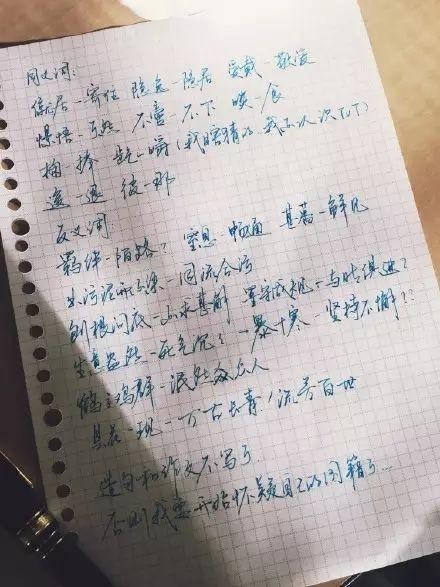 同义词:
僦居-寄住 隐逸-隐居 爱戴-敬爱
憬悟-了然 不啻-不下 啖-食
掬-捧 龁-嚼(我瞎猜的,我不认识TUT)
逡-退 彼-那
反义词
羁绊-陌路? 窒息-畅通 甚蕃-鲜见
出污泥而不染-同流合污
刨根问底-不求甚解 墨守成规-与时俱进?
生意盎然-死气沉沉 一暴十寒-坚持不懈??
鹤立鸡群-泯然众人
昙花一现-万古长青/流芳百世
造句和作文不写了
否则我要开始怀疑自己的国籍了...